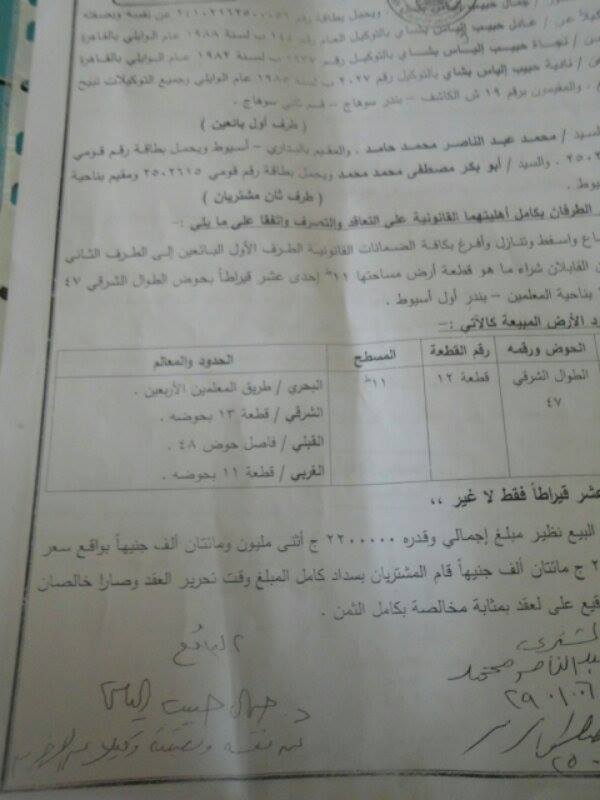 جمال حبيب إلياس ويحمل بطاقة رقم عن نفسه وبصفته
وكيلاً عن / عادل حبيب إلياس بشاي بالتوكيل العام رقم ١٤٤ ب لسنة ١٩٨٨ الوايلي بالقاهرة
/ نجاة حبيب إلياس بشاي بالتوكيل رقم ب لسنة ١٩٨٢ عام الوايلي بالقاهرة
/ نادية حبيب إلياس بشاي بالتوكيل رقم ٢٠٢٧ ب لسنة ١٩٨٥ عام الوايلي وجميع التوكيلات تبيح
، والمقيمون برقم ١٩ ش الكاشف – بندر سوهاج – قسم ثاني سوهاج .
( طرف أول بائعين )
السيد / محمد عبد الناصر محمد حامد . والمقيم بالبداري – أسيوط ويحمل بطاقة رقم قومي
٢٥٠٢ . والسيد / أبو بكر مصطفى محمد محمد ويحمل بطاقة رقم قومي ٢٥٠٢٦١٥ ومقيم بناحية
( طرف ثان مشتريان )
الطرفان بكامل أهليتهما القانونية على التعاقد والتصرف واتفقا على ما يلي :–
باع واسقط وتنازل وأفرغ بكافة الضمانات القانونية الطرف الأول البائعين إلى الطرف الثاني
القابلان شراء ما هو قطعة أرض مساحتها ١١ط إحدى عشر قيراطاً بحوض الطوال الشرقي ٤٧
بناحية المعلمين – بندر أول أسيوط .
الأرض المبيعة كالآتي :–
الحوض ورقمه رقم القطعة المسطح الحدود والمعالم
الطوال الشرقي ٤٧ قطعة ١٢ ١١ط البحري / طريق المعلمين الأربعين .
الشرقي / قطعة ١٣ بحوضه .
القبلي / فاصل حوض ٤٨ .
الغربي / قطعة ١١ بحوضه .
عشر قيراطاً فقط لا غير ،،
البيع نظير مبلغ إجمالي وقدره ٢٢٠٠٠٠٠ ج أثنى مليون ومائتان ألف جنيهاً بواقع سعر
ج مائتان ألف جنيهاً قام المشتريان بسداد كامل المبلغ وقت تحرير العقد وصارا خالصان
على لعقد بمثابة مخالصة بكامل الثمن .
البائع
المشترى
د. جمال حبيب إلياس
عبد الناصر محمد
عن نفسه وبصفته وكيلا عن